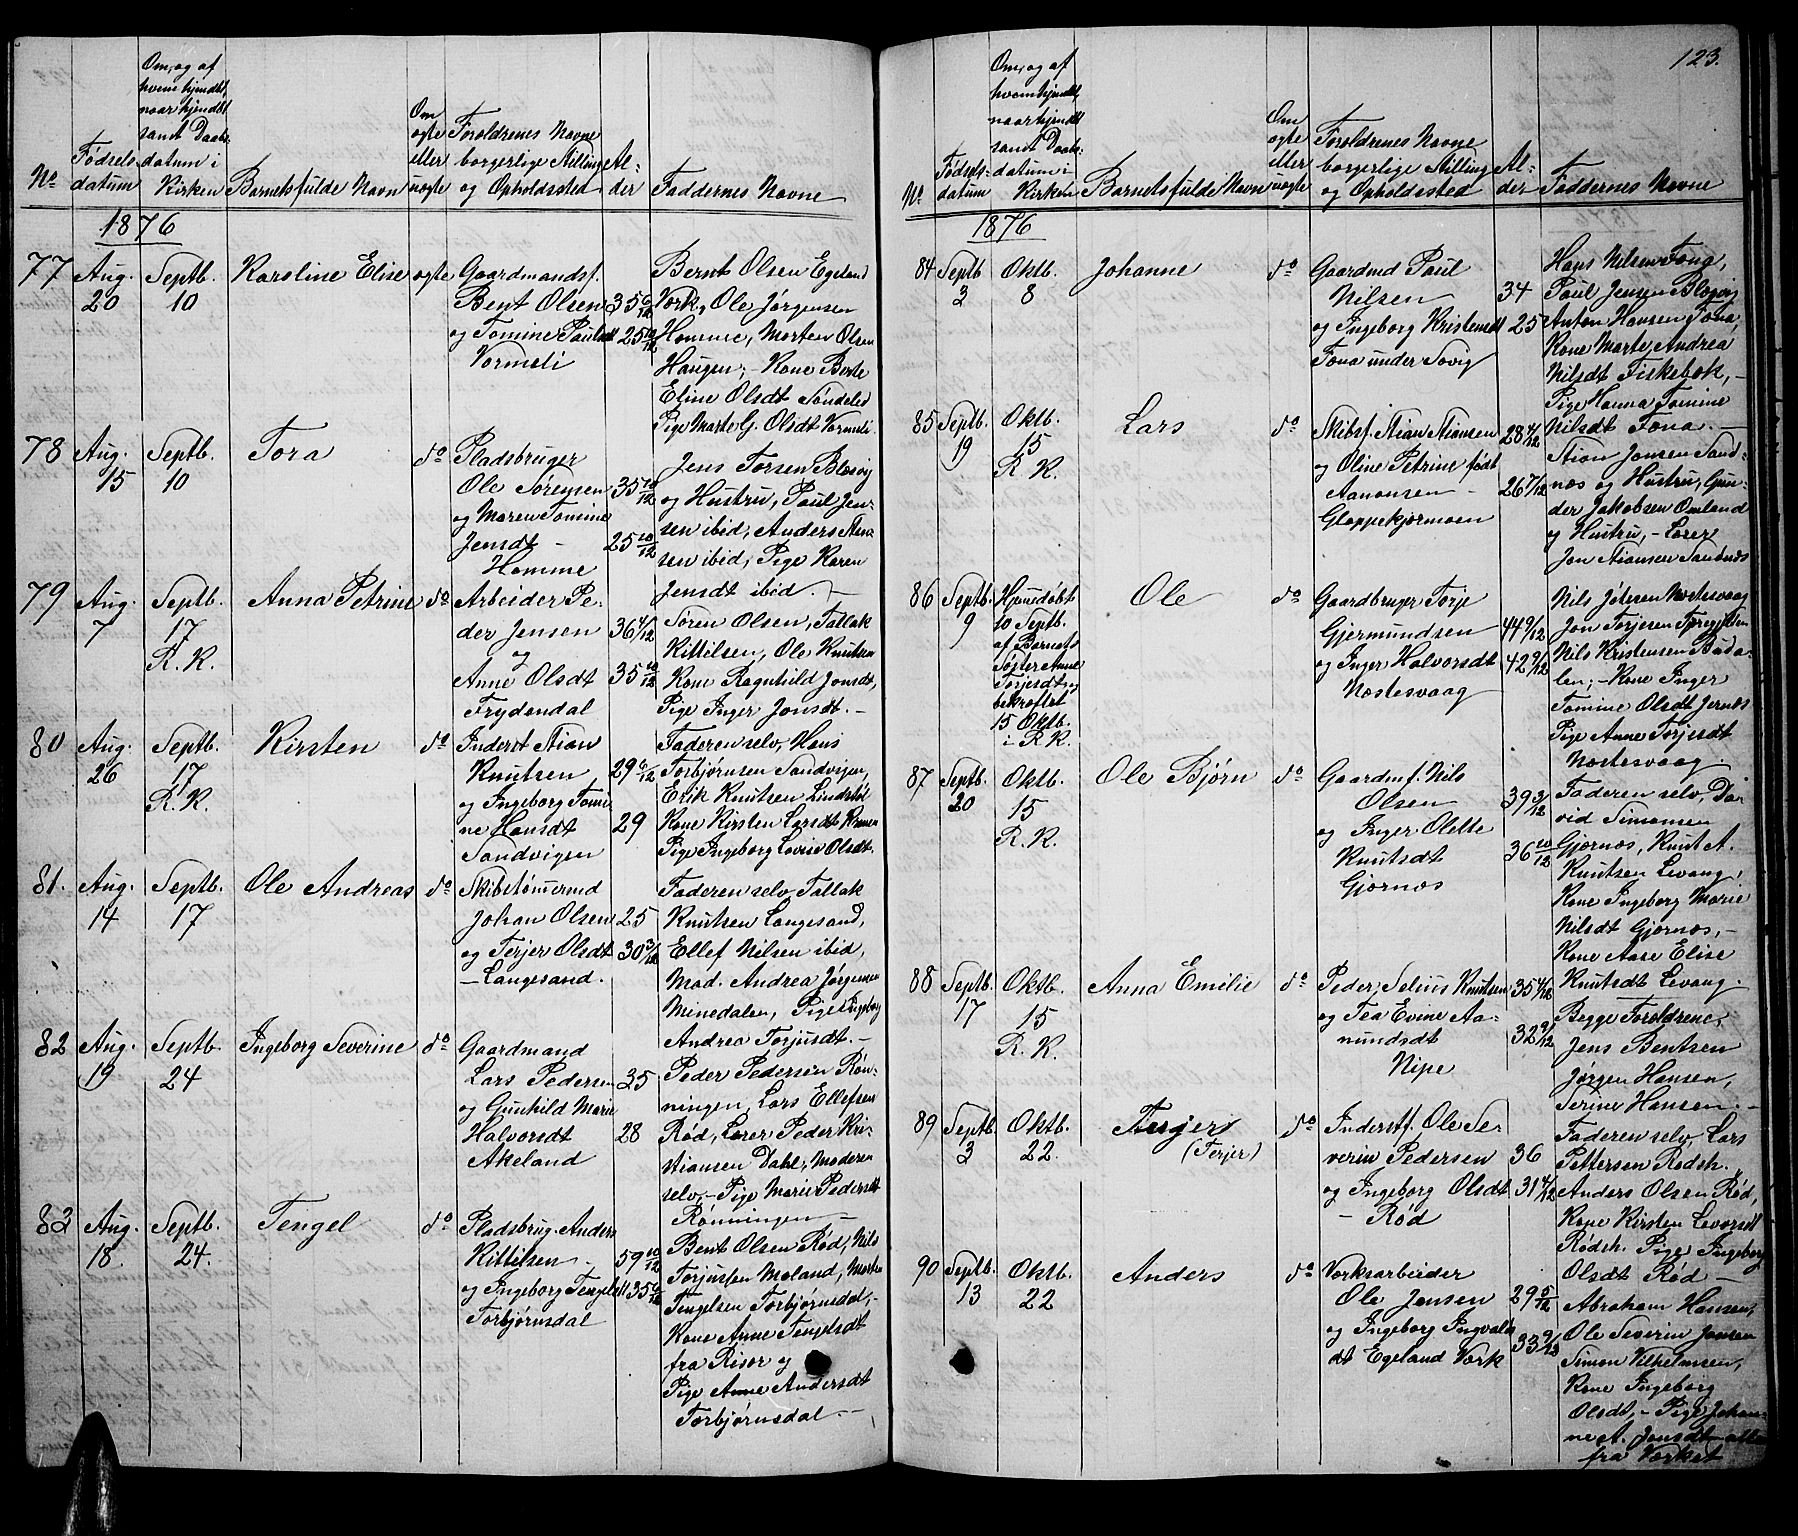 123.
No
Fødsels-
datum
Om, og af
hvem hjemdbt,
naar hjemdbt
samt Daabs-
datum i
Kirken
Barnets fulde Navn
Om
ægte
eller
uægte
Forældrenes Navne
borgerlige Stilling
og Opholdssted
Al-
der
Faddernes Navne
1876
77 Aug. 20
Septb. 10
Karoline Elise
ægte
Gaardmandsf.
Bent Olsen 35 6/12
og Tomine Paulsdt 25 10/12
Vormeli
Bernt Olsen Egeland
Værk, Ole Jørgensen
Homme, Morten Olsen
Haugen, - Kone Berte
Eline Olsdt Søndeled
Pige Marte G. Olsdt Vormeli.
78 Aug. 15
Septb. 10
Tora
do
Pladsbruger
Ole Sørensen 35 10/12
og Maren Tomine
Jensdt - 25 10/12
Homme
Jens Torsen Blæsøy
og Hustru, Paul Jen-
sen ibid, Anders
sen ibid, Pige Karen
Jensdt ibid. -
79 Aug. 7
Septb. 17
R. K.
Anna Petrine
do
Arbeider Pe-
der Jensen 36 4/12
og
Anne Olsdt 35 10/12
Frydendal
Søren Olsen, Tallak
Kittilsen, Ole Knutsen
Kone Ragnhild Jonsdt,
Pige Inger Jonsdt. -
80 Aug. 26
Septb. 17
R. K.
Kirsten
do
Inderst Stian
Knutsen 29 6/12
og Ingeborg Tomi-
ne Hansdt 29
Sandvigen
Faderen selv, Hans
Torbjørnsen Sandvigen,
Erik Knutsen Lindstøl
Kone Kirsten Larsdt
Pige Ingeborg Lovise Olsdt.
81. Aug. 14
Septb. 17
Ole Andreas
do
Skibstømermd
Johan Olsen 25
og Terjer Olsdt 30 3/12
- Langesand.
Faderen selv Tallak
Knutsen Langesand,
Ellef Nilsen ibid,
Mad. Andrea Jørgensen
Minedalen, Pige Ingeborg
Andrea Torjusdt. -
82 Aug. 19
Septb. 24
Ingeborg Severine
do
Gaardmand
Lars Pedersen 35
og Gunhild Marie
Halvorsdt 28
Akeland
Peder Pedersen Røn-
ningen, Lars Ellefsen
Rød, Lærer Peder Kri-
stiansen Dahl, Moderen
selv, - Pige Marie Pedersdt
Rønningen -
83 Aug. 18.
Septb. 24.
Tengel
do
Pladsbrug. Anders
Kittilsen - 59 10/12
og Ingeborg Tengelsdt 35 6/12
Torbjørnsdal
Bent Olsen Rød, Nils
Torjussen Moland, Morten
Tengelsen Torbjørnsdal, -
Kone Anne Tengelsdt
fra Risør og
Pige Anne Andersdt
Torbjørnsdal. -
No
Fødsels-
datum
Om, og af
hvem hjemdbt,
naar hjemdbt
samt Daabs-
datum i
Kirken
Barnets fulde Navn
Om
ægte
eller
uægte
Forældrenes Navne
borgerlige Stilling
og Opholdssted
Al-
der
Faddernes Navne
1876
84 Septb 3
Oktb. 8
Johanne
do
Gaardmd Paul
Nilsen 34
og Ingeborg Kristensdt 25
Fona under Sovig
Hans Nilsen Fona,
Paul Jensen Blæsøy
Anton Hansen Fona,
Kone Marte Andrea
Nilsdt Fiskebæk, -
Pige Hanna Tomine
Nilsdt Fona. -
85 Septb. 19
Oktb. 15
R. K.
Lars
do
Skibsf. Stian Stiansen 28 4/12
og Oline Petrine født
Aanonsen - 26 7/12
Gloppekjærmoen
Stian Jonsen Sand-
næs og Hustru, Gun-
der Jakobsen Omland
og Hustru, - Lærer
Jon Stiansen Sandnæs
86 Septb. 9
Hjemedøbt
10 Septb.
af Barnets
Søster Anne
Torjesdt og
bekræftet
15 Oktb.
i R. K.
Ole
do
Gaardbruger Torje
Gjermundsen 44 9/12
og Inger Halvorsdt 42 9/12
Næstesvaag
Nils Jøteren Næstesvaag
Jon Torjesen
Nils Kristensen Buda-
len; - Kone Inger
Tomine Olsdt Jernæs
Pige Anne Torjesdt
Næstesvaag. -
87 Septb. 20
Oktb. 15
R. K.
Ole Bjørn
do
Gaardmf. Nils
Olsen 39 3/12
og Inger Olette
Knutsdt 36 10/12
Gjernæs
Faderen selv, Da-
vid Simonsen
Gjernæs, Knut A.
Knutsen Levang,
Kone Ingeborg Marie
Nilsdt Gjernæs, -
Kone Aase Elise
Knutsdt Levang. -
88 Septb. 17
Oktb. 15
R. K.
Anna Emilie
do
Peder Selius Knutsen 35 4/12
og Tea Evine Aa-
nundsdt 32 9/12
Nipe
Begge Forældrene,
Jens Bentsen
Jørgen Hansen,
Serine Hansen. -
89 Septb. 3
Oktb. 22.
(Terjer)
do
Inderstf. Ole Se-
verin Pedersen 36
og Ingeborg Olsdt 31 4/12
- Rød
Faderen selv, Lars
Pettersen Rødsh.
Anders Olsen Rød,
Kone Kirsten Levorsdt
Rødsh. Pige Ingeborg
Olsdt Rød -
90 Septb. 13
Oktb. 22
Anders
do
Værksarbeider
Ole Jensen 29 5/12
og Ingeborg Ingvalds-
dt Egeland Værk 33 9/12
Abraham Hansen,
Ole Severin Jansen
Simon Vilhelmsen,
Kone Ingeborg
Olsdt, - Pige Johan-
ne A. Jonsdt - alle
fra Værket